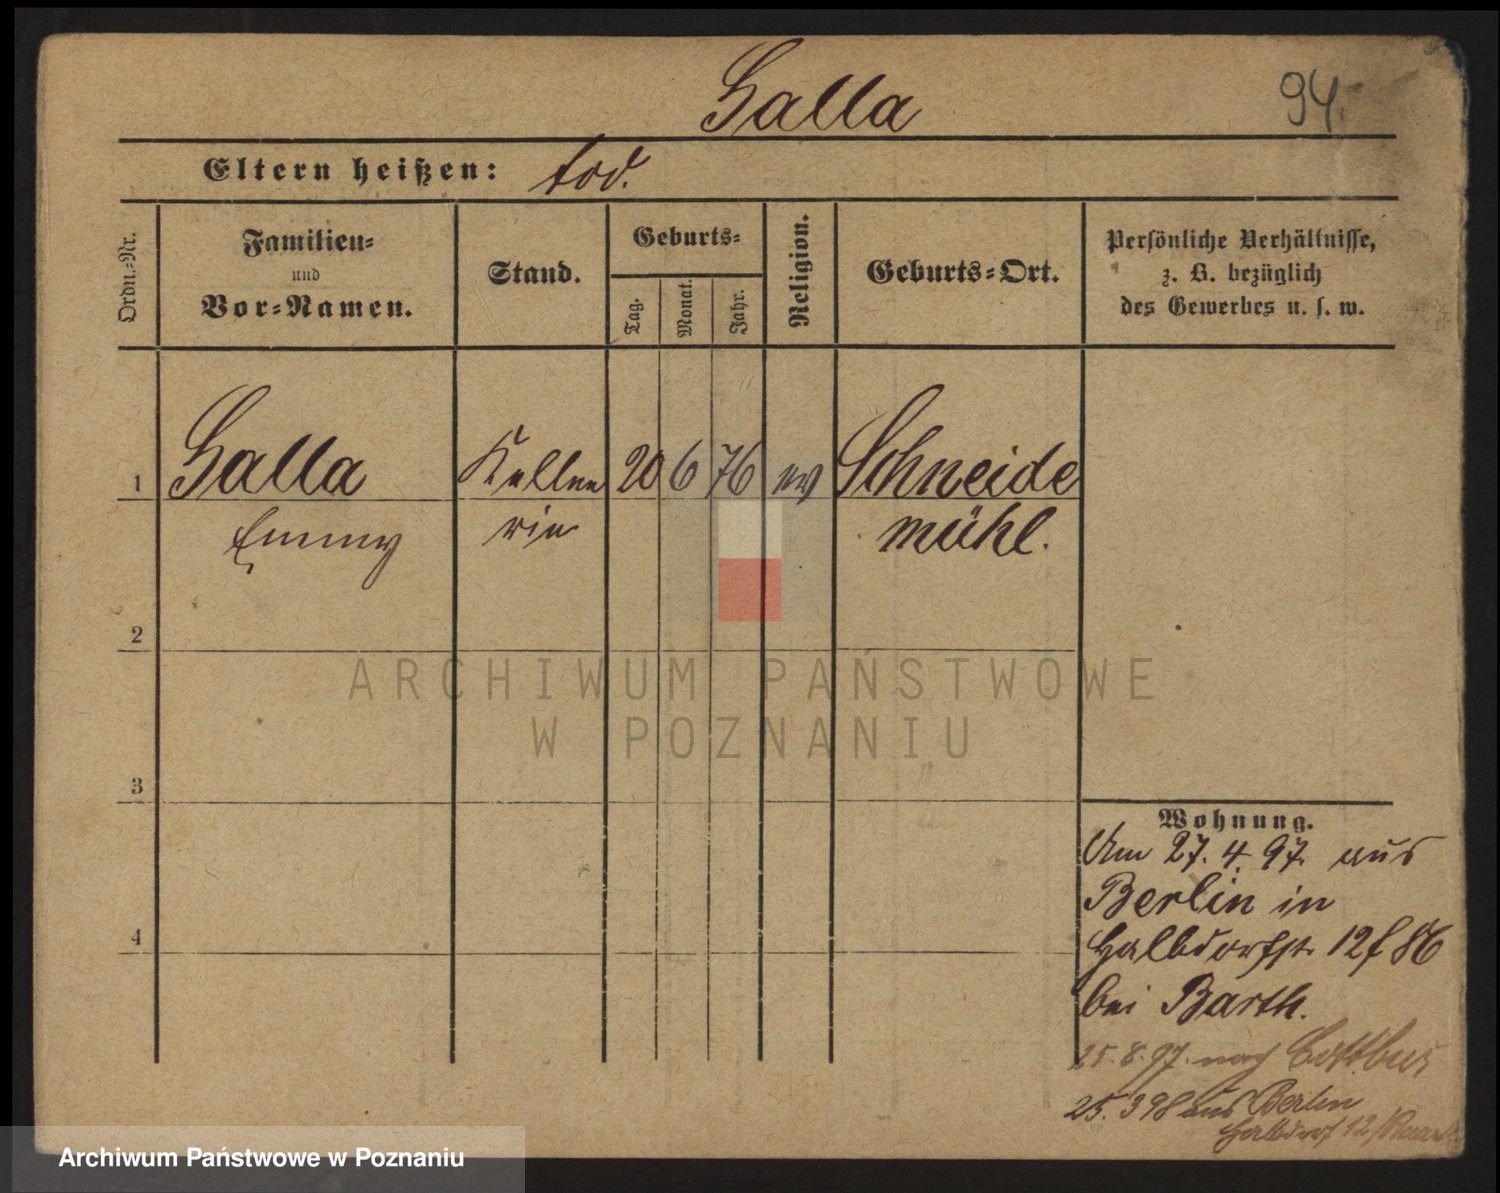 Galla
94.
Eltern heißen: tod.
Ordn.-Nr.
Familien-
und
Vor-Namen.
Stand.
Geburts-
Tag.
Monat.
Jahr.
Religion.
Geburts-Ort.
Persönliche Verhältnisse,
z. B. bezüglich
des Gewerbes u. s. w.
1 Galla Kellne 20 6 76 ev Schneide
Emmy rin mühl.
2
3
4
Wohnung.
Am 27.4.97. aus
Berlin in
Halbdorfstr. 12 f 86
bei Barth.
25.8.97. nach Cottbus
25.3 98 aus Berlin
Halbdorf 12/
ARCHIWUM PAŃSTWOWE
W POZNANIU
Archiwum Państwowe w Poznaniu